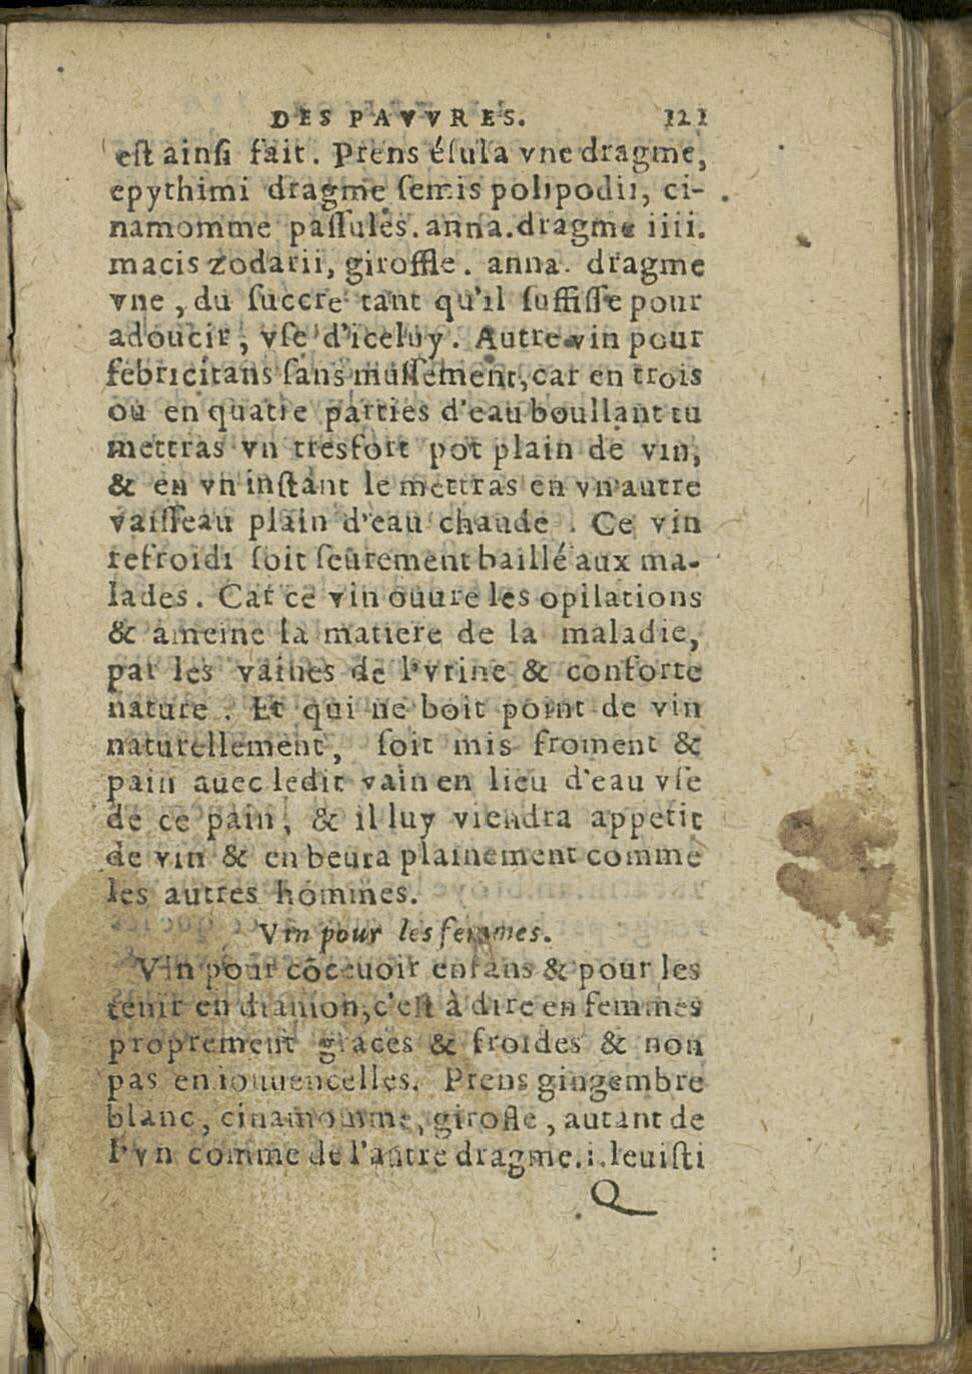 DES PAVVRES. 121
eſt ainſi fait. Prens éſula vne dragme,
epythimi dragme ſemis polipodii, ci-
namomme paſſules. anna. dragme iiii.
macis zodarii, giroffle. anna. dragme
vne, du ſuccre tant qu'il ſuffiſſe pour
adoucir, vſe d'iceluy. Autre vin pour
febricitans ſans muſſement, car en trois
ou en quatre parties d'eau boullant tu
mettras vn tresfort pot plain de vin,
& en vn inſtant le mettras en vn autre
vaiſſeau plain d'eau chaude. Ce vin
refroidi ſoit ſeûrement baillé aux ma-
lades. Car ce vin ouure les opilations
& ameine la matiere de la maladie,
par les vaines de l'vrine & conforte
nature. Et qui ne boit point de vin
naturellement, ſoit mis froment &
pain auec ledit vain en lieu d'eau vſe
de ce pain, & il luy viendra appetit
de vin & en beura plainement comme
les autres hommes.
Vin pour les femmes.
Vin pour côceuoir enfans & pour les
tenir en dianion, c'eſt à dire en femmes
proprement graces & froides & non
pas en iouuencelles. Prens gingembre
blanc, cinamomme, girofle, autant de
l'vn comme de l'autre dragme.i. leuiſti
Q